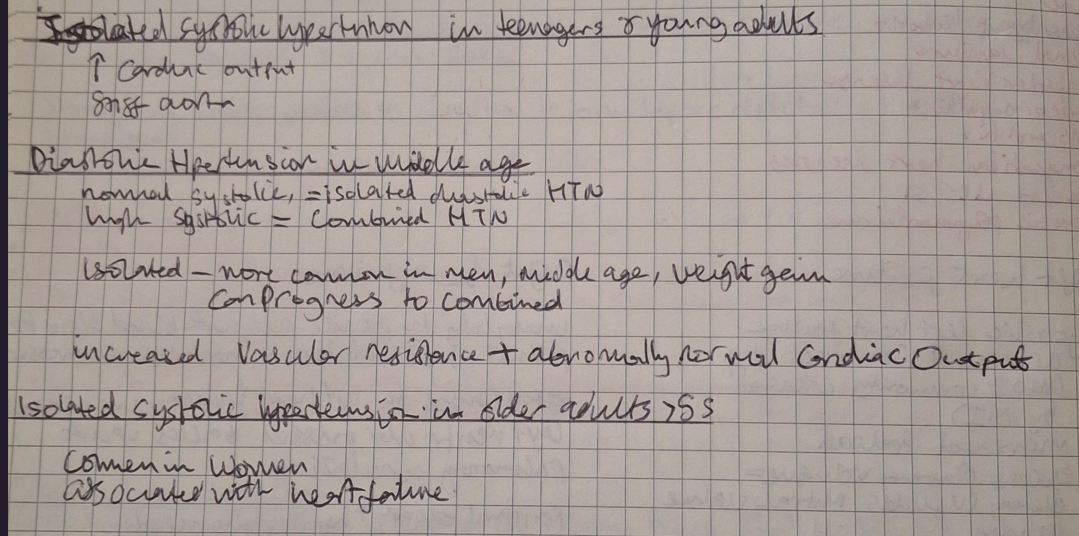 Isolated systolic hypertension in teenagers & young adults
↑ Cardiac output
Stiff aorta
Diastolic Hpertension in middle age
normal systolic, = isolated diastolic HTN
high systolic = Combined HTN
Isolated – more common in men, middle age, weight gain
can Progress to combined
increased Vascular resistence + abnormally normal Cardiac Output
Isolated systolic hypertension in older adults >55
Common in Women
associated with heart failure